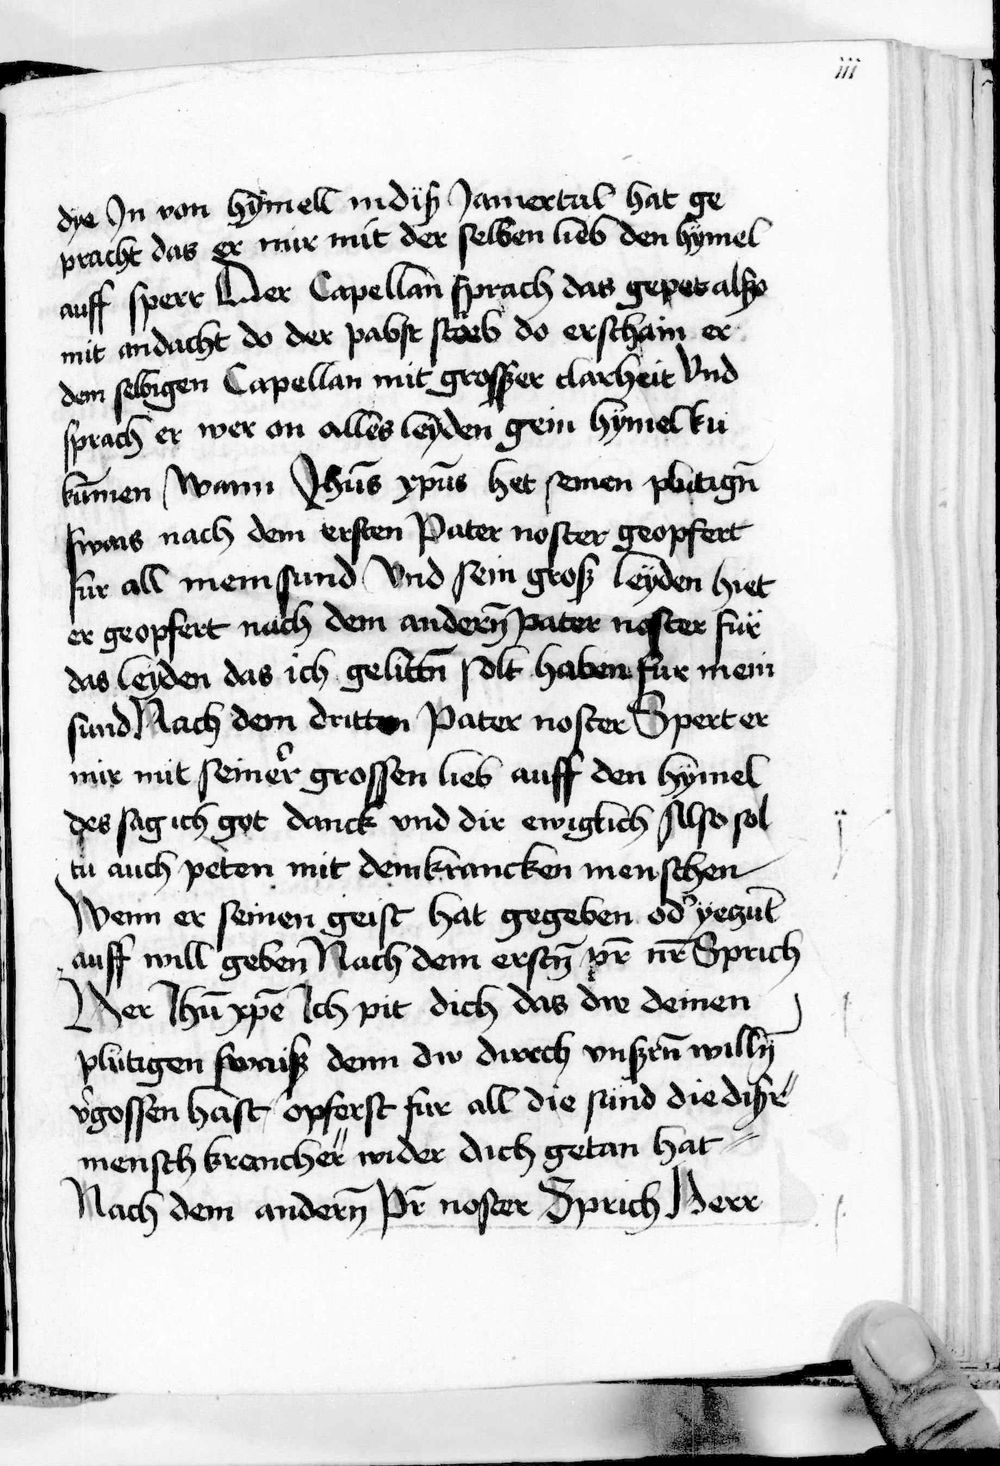 iii
dye In von hÿmell in diß Jamertal hat ge
pracht das er mir mit der selben lieb den hÿmel
auff sperr Der Capellan sprach das gepet alßo
mit andacht do der pabst starb do erschain er
dem selbigen Capellan mit grosser clarheit Vnd
sprach er wer on alles leÿden gein hÿmel ku
kūmen Wann Jhūs xpūs het seinen plutign̄
swais nach dem ersten Pater noster geopfert
fur all mein sund Vnd sein groß leÿden hiet
er geopfert nach dem andern̄ pater noster für
das leyden das ich gelittn̄ solt haben fur mein
sund Nach dem dritten Pater noster Spert er
mir mit seiner grossen lieb auff den hÿmel
des sag ich got danck vnd dir ewiglich Also sol
tu auch peten mit dem krancken menschen
Wenn er seinen geist hat gegeben od' yeczūt
auff will geben Nach dem erstn̄ pr̄ nr̄ Sprich
Her Jhū xpē Ich pit dich das dw deinen
plütigen swaiß denn dw durch vnßrn̄ willn̄
v'gossen hast opferst fur all die sünd die dißr
mensch krancher wider dich getan hat
Nach dem andern̄ Pr̄ noster Sprich Herr